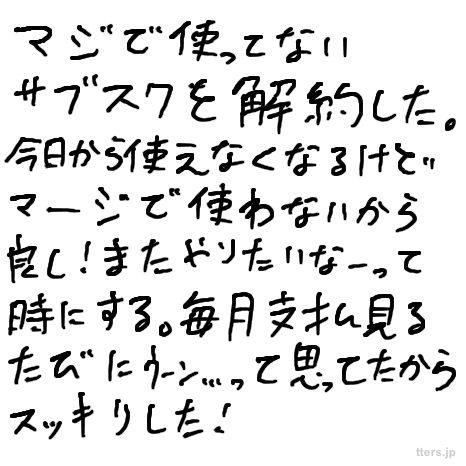 マジで使ってない
サブスクを解約した。
今日から使えなくなるけど
マージで使わないから
良し!またやりたいなーって
時にする。毎月支払い見る
たびにウーン…って思ってたから
スッキリした!
tters.jp